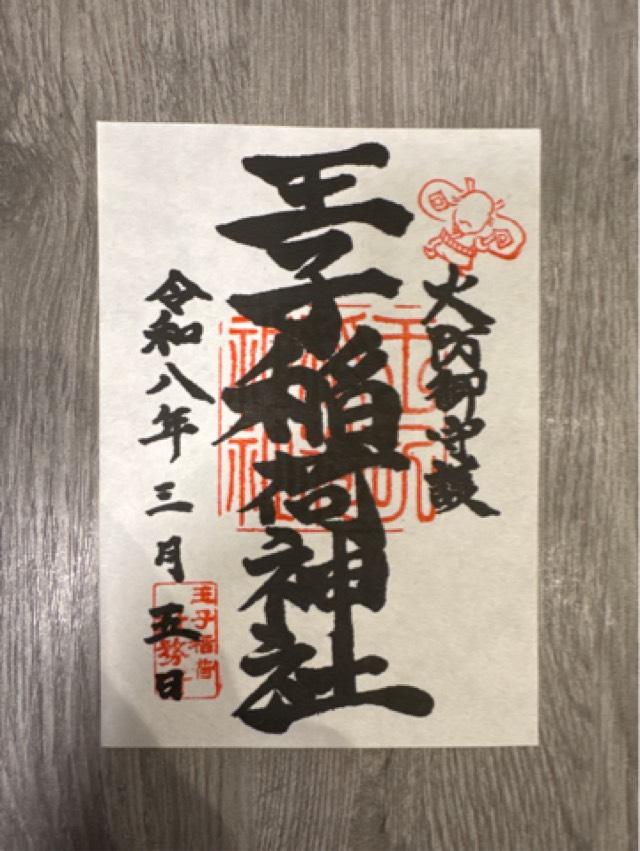 火防御守護
王子稲荷神社
令和八年三月五日
王子稲荷